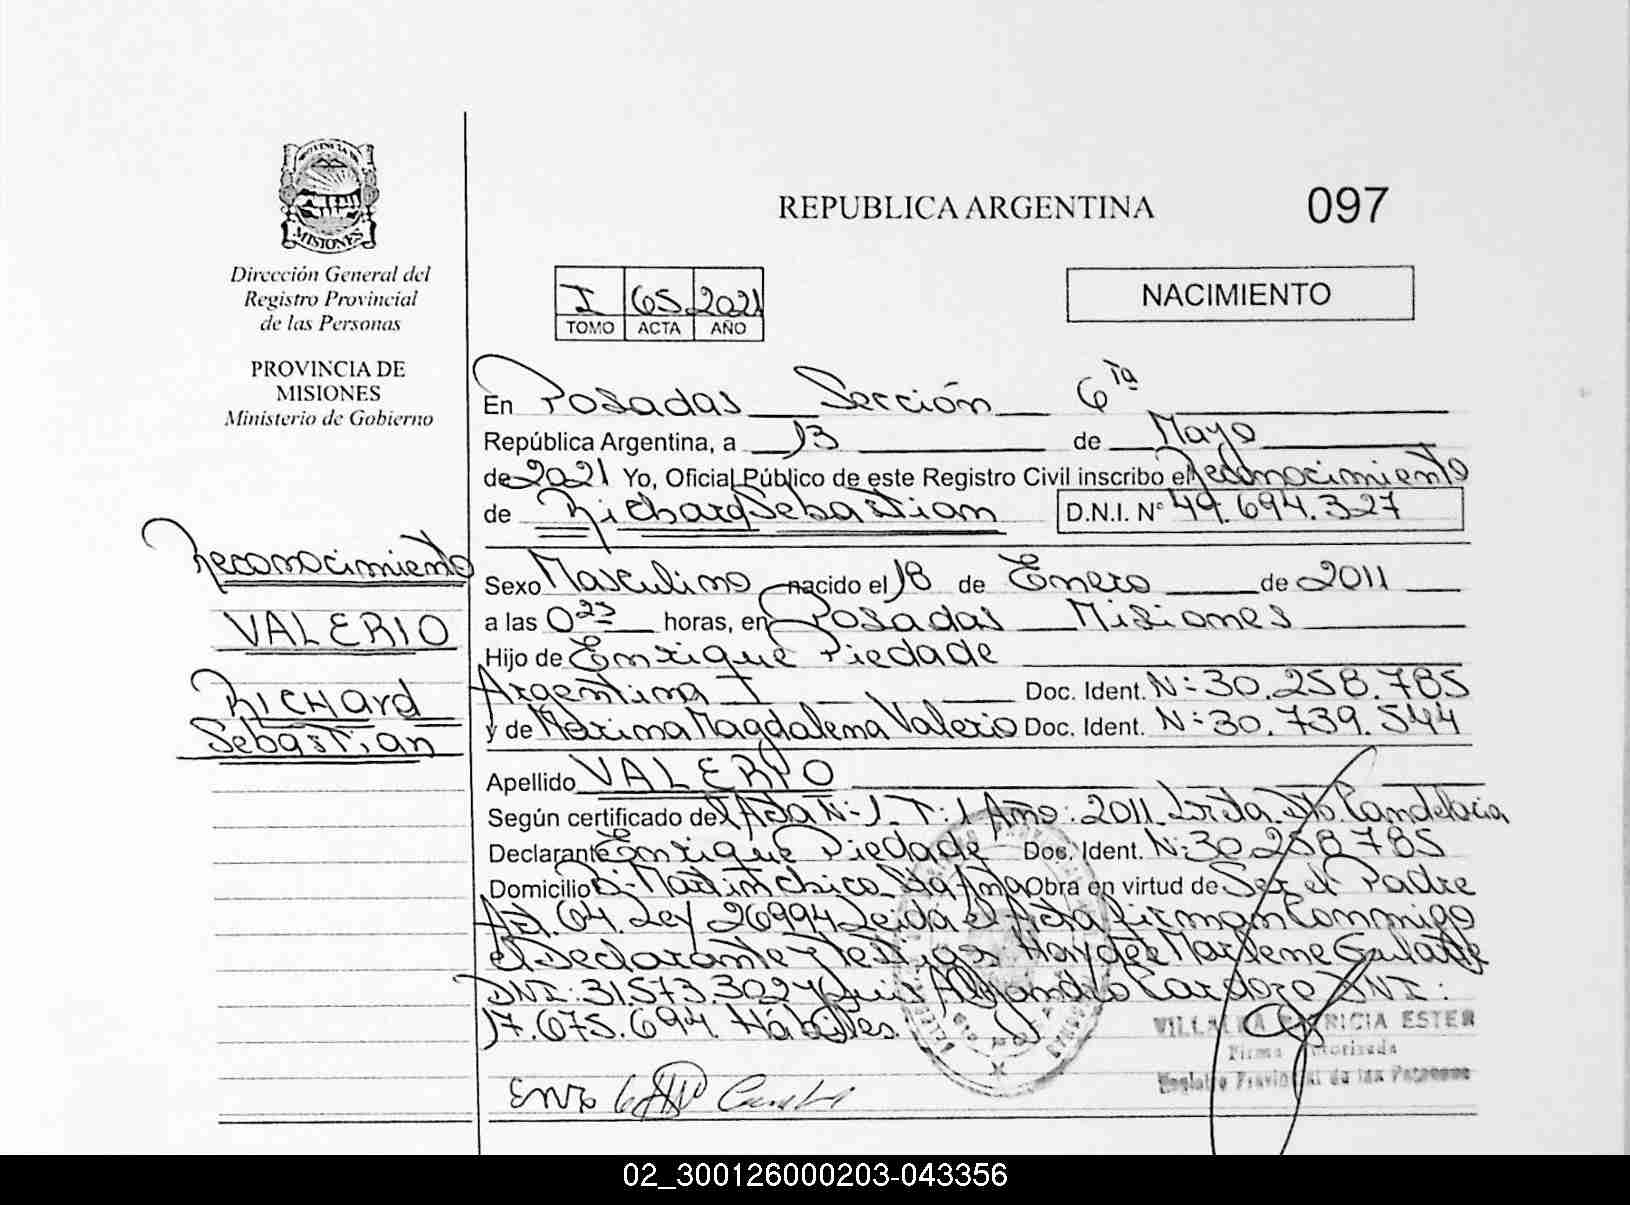 PROVINCIA DE
MISIONES
Dirección General del
Registro Provincial
de las Personas
PROVINCIA DE
MISIONES
Ministerio de Gobierno
REPUBLICA ARGENTINA
097
I 65 2021
TOMO ACTA AÑO
NACIMIENTO
Reconocimiento
VALERIO
RICHard
Sebastian
En Posadas Sección 6ta
República Argentina, a 13 de Mayo
de 2021 Yo, Oficial Público de este Registro Civil inscribo el Reconocimiento
de Richard Sebastian D.N.I. N° 49.694.327
Sexo Masculino nacido el 18 de Enero de 2011
a las 0 horas, en Posadas Misiones
Hijo de Enrique Piedade
Argentina Doc. Ident. N: 30.258.785
y de Magdalena Valerio Doc. Ident. N: 30.739.544
Apellido VALERIO
Según certificado del Acta N: 1 T: 1 Año: 2011 Candelaria
Declarante Enrique Piedade Doc. Ident. N: 30.258.785
Domicilio B: Martin chico Sta Ana Obra en virtud de Ser el Padre
Art. 64. Ley 26994 Leida el Acta Firman Conmigo
el Declarante y Testigos Haydee Marlene
DNI: 31.573.302 y Luis Alejandro Cardozo DNI:
17.675.694. Hábiles.
VILLALBA PATRICIA ESTER
Firma Autorizada
Registro Provincial de las Personas
02_300126000203-043356